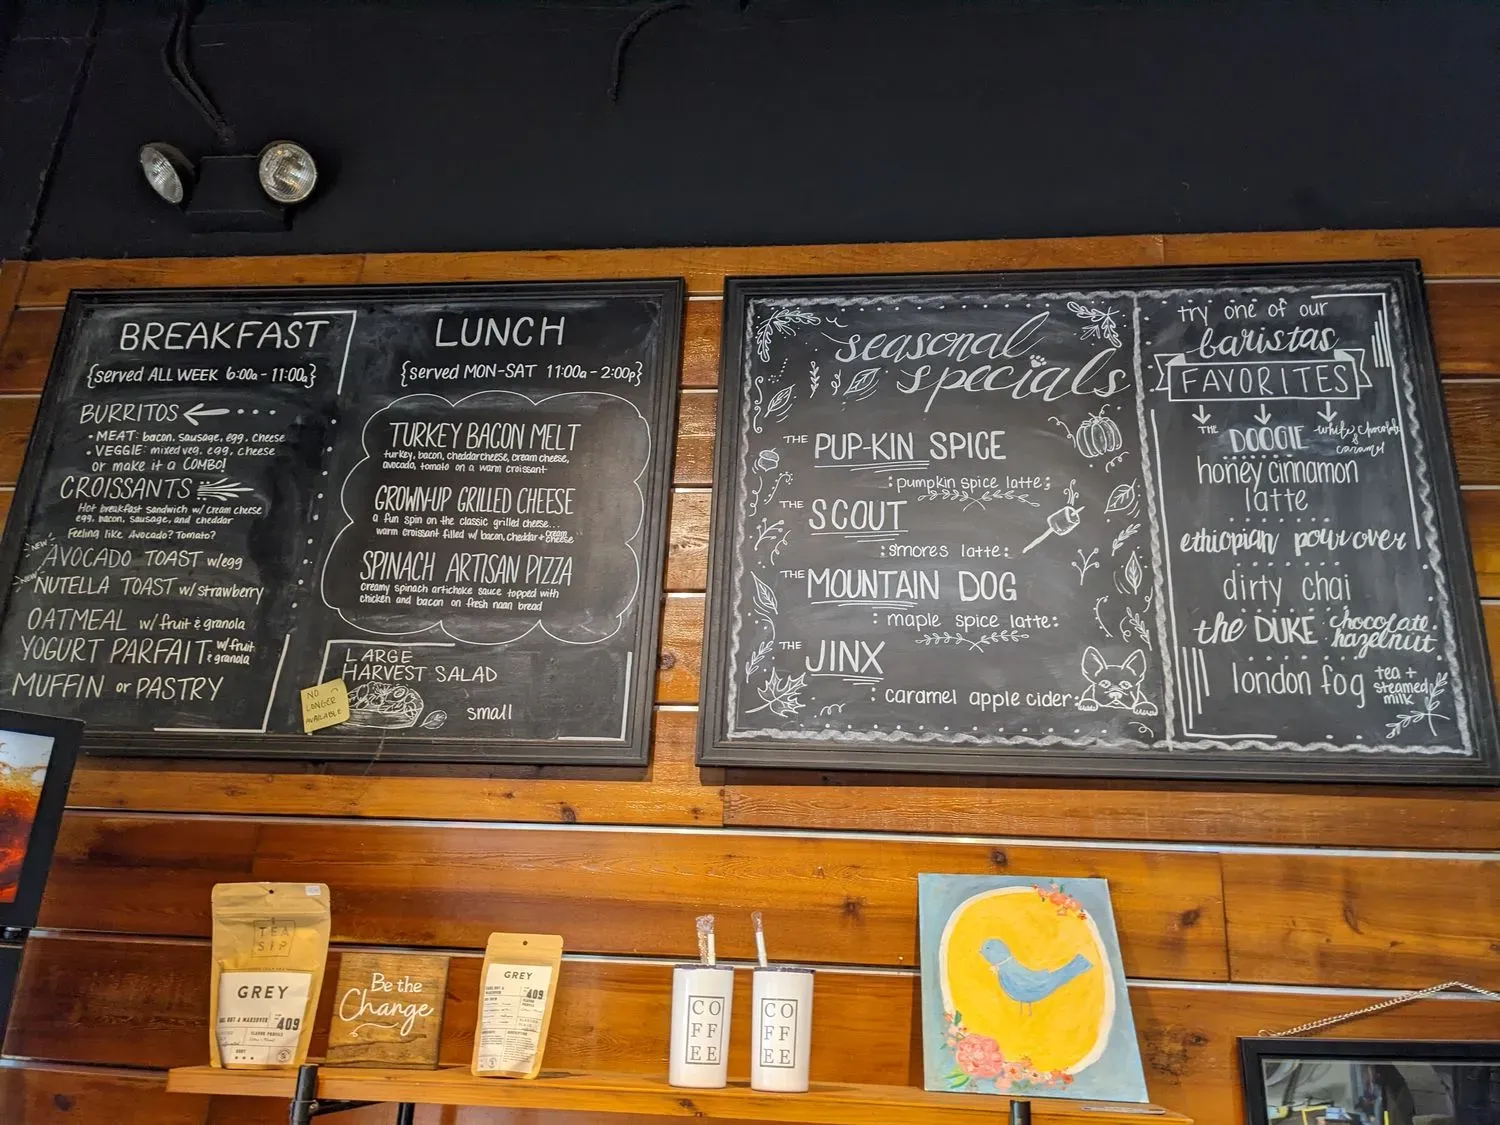 BREAKFAST
{served ALL WEEK 6:00a - 11:00a}
BURRITOS
• MEAT: bacon, sausage, egg, cheese
• VEGGIE: mixed veg, egg, cheese
or make it a COMBO!
CROISSANTS
Hot breakfast sandwich w/ cream cheese
egg, bacon, sausage, and cheddar
Feeling like Avocado? Tomato?
NEW
AVOCADO TOAST w/egg
NEW
NUTELLA TOAST w/ strawberry
OATMEAL w/ fruit & granola
YOGURT PARFAIT w/ fruit
& granola
MUFFIN or PASTRY
LUNCH
{served MON-SAT 11:00a - 2:00p}
TURKEY BACON MELT
turkey, bacon, cheddar cheese, cream cheese,
avocado, tomato on a warm croissant
GROWN-UP GRILLED CHEESE
a fun spin on the classic grilled cheese...
warm croissant filled w/ bacon, cheddar + cream
cheese
SPINACH ARTISAN PIZZA
creamy spinach artichoke sauce topped with
chicken and bacon on fresh naan bread
LARGE
HARVEST SALAD
NO
LONGER
AVAILABLE
small
seasonal
specials
THE PUP-KIN SPICE
: pumpkin spice latte :
THE SCOUT
: smores latte :
THE MOUNTAIN DOG
: maple spice latte :
THE JINX
: caramel apple cider :
try one of our
baristas
FAVORITES
THE DOOGIE white chocolate
&
caramel
honey cinnamon
latte
ethiopian pour over
dirty chai
the DUKE chocolate
hazelnut
london fog tea +
steamed
milk
TEA
SIP
GREY
409
Be the
Change
GREY
409
CO
FF
EE
CO
FF
EE